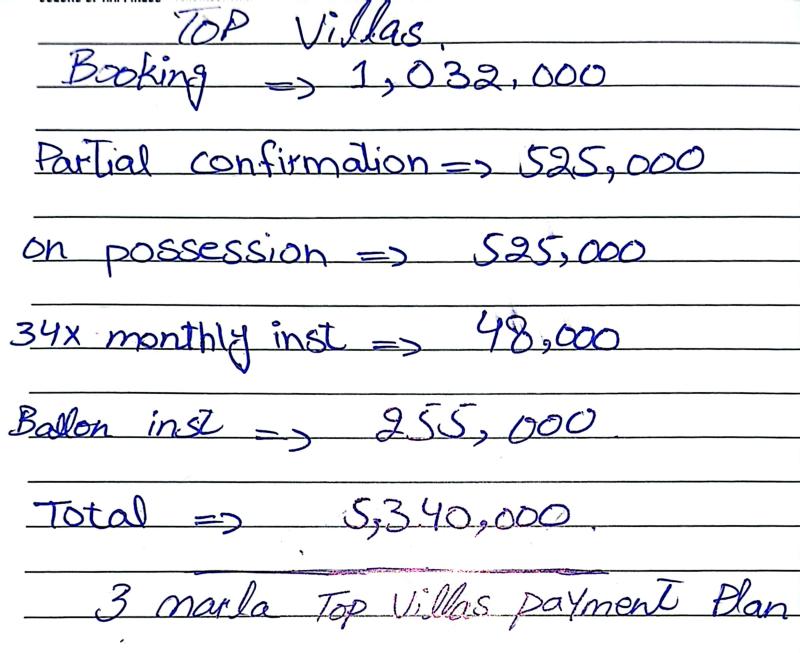 Top Villas.
Booking => 1,032,000
Partial confirmation => 525,000
on possession => 525,000
34x monthly inst => 48,000
Ballon inst => 255,000
Total => 5,340,000.
3 marla Top Villas payment Plan